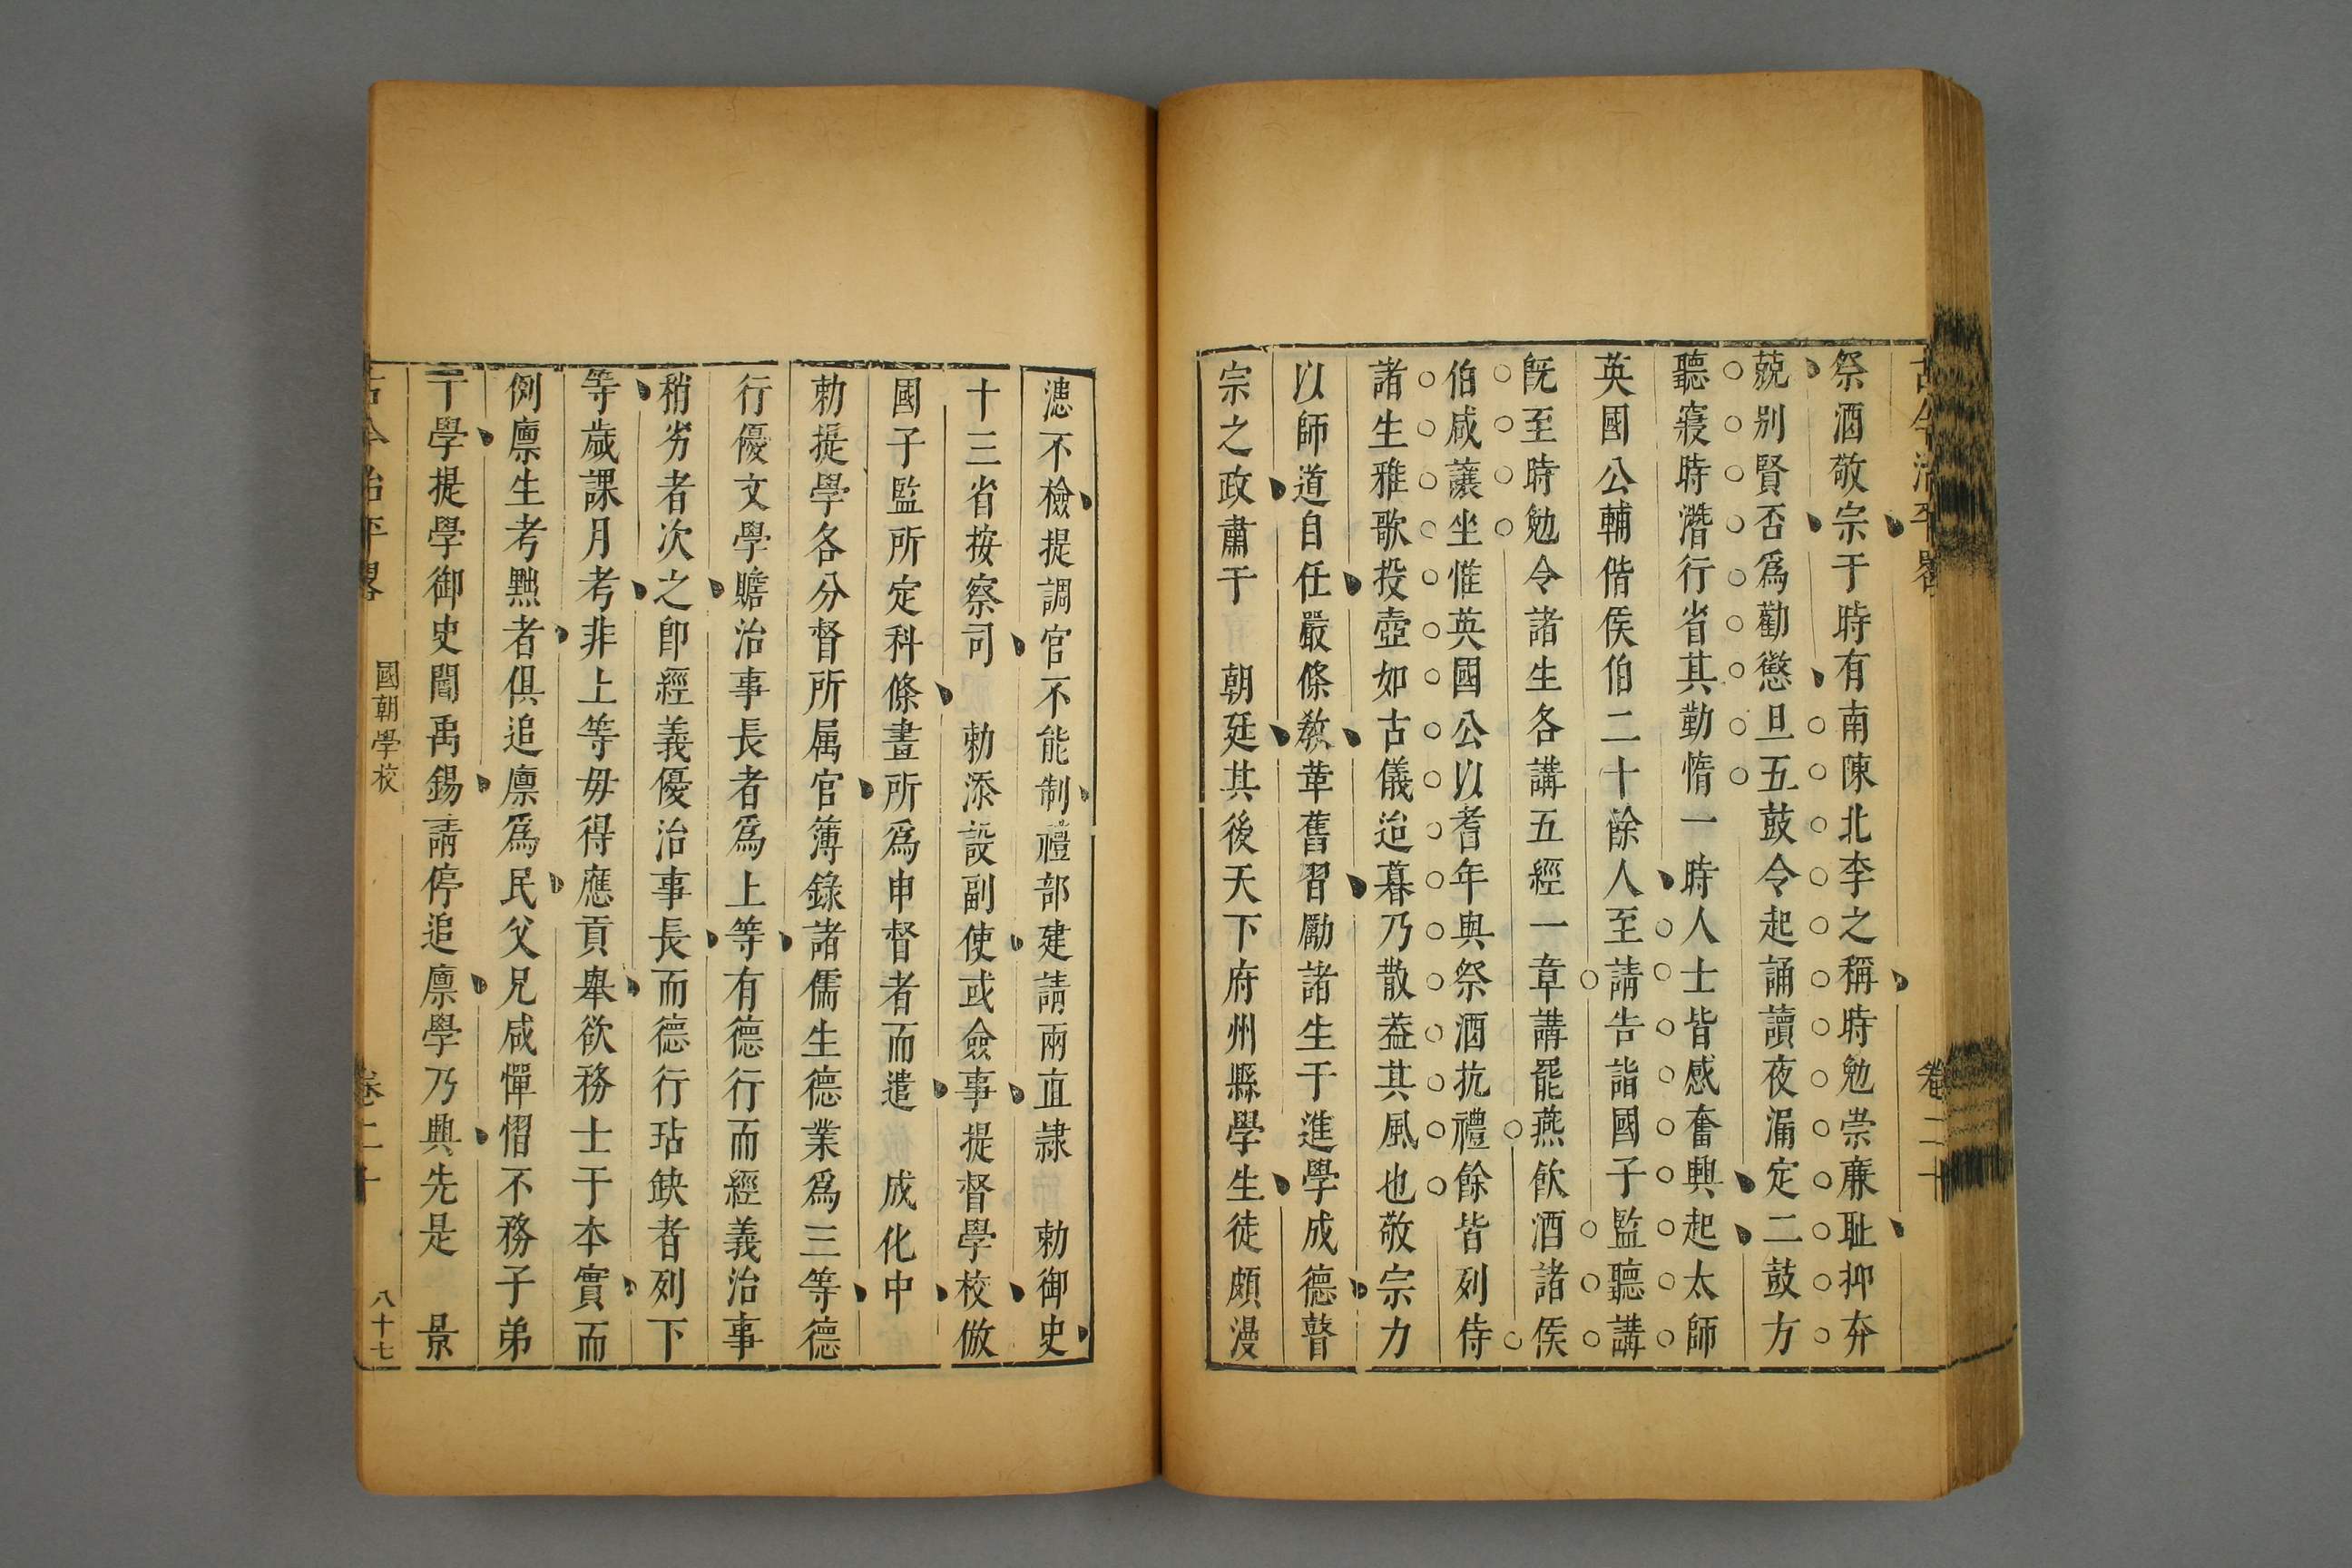 古今治平畧 卷二十
祭酒敬宗于時有南陳北李之稱時勉崇亷耻抑奔
兢别賢否爲勸懲旦五鼓令起誦讀夜漏定二鼓方
聽寢時潛行省其勤惰一時人士皆感奮興起太師
英國公輔偕侯伯二十餘人至請告詣國子監聽講
旣至時勉令諸生各講五經一章講罷燕飲酒諸侯
伯咸讓坐惟英國公以耆年與祭酒抗禮餘皆列侍
諸生雅歌投壺如古儀迨暮乃散葢其風也敬宗力
以師道自任嚴條教革舊習勵諸生于進學成德瞽
宗之政肅于 朝廷其後天下府州縣學生徒頗漫
漶不檢提調官不能制禮部建請兩直隷 勅御史
十三省按察司 勅添設副使或僉事提督學校倣
國子監所定科條晝所爲申督者而遣 成化中
勅提學各分督所属官簿錄諸儒生德業爲三等德
行優文學贍治事長者爲上等有德行而經義治事
稍劣者次之卽經義優治事長而德行玷缺者列下
等歲課月考非上等毋得應貢舉欲務士于本實而
例廪生考黜者俱追廪爲民父兄咸憚慴不務子弟
于學提學御史閻禹錫請停追廪學乃興先是 景
古今治平畧 國朝學校 卷二十 八十七